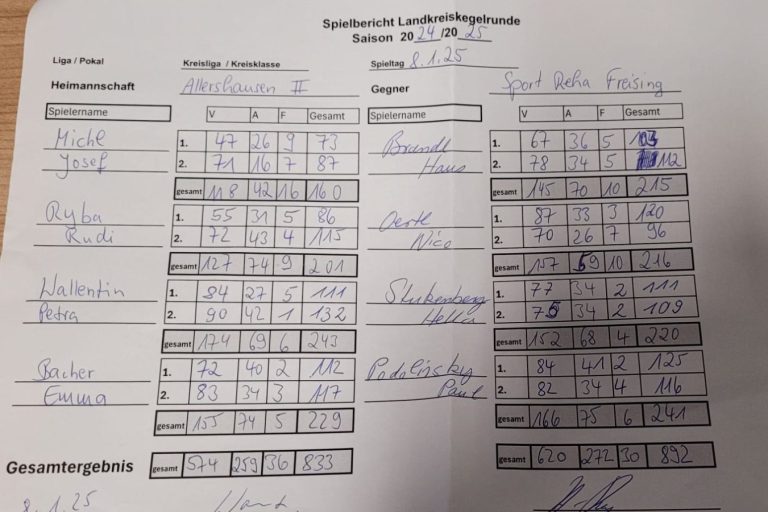 Spielbericht Landkreiskegelrunde
Saison 2024/2025
Liga / Pokal Kreisliga / Kreisklasse Spieltag 8.1.25
Heimannschaft Allershausen II Gegner Sport Reha Freising
Spielername V A F Gesamt Spielername V A F Gesamt
Michl 1. 47 26 9 73 Brandl 1. 67 36 5 103
Josef 2. 71 16 7 87 Hans 2. 78 34 5 112
gesamt 118 42 16 160 gesamt 145 70 10 215
Ryba 1. 55 31 5 86 Oertl 1. 87 33 3 120
Rudi 2. 72 43 4 115 Nico 2. 70 26 7 96
gesamt 127 74 9 201 gesamt 157 59 10 216
Wallentin 1. 84 27 5 111 Stukenberg 1. 77 34 2 111
Petra 2. 90 42 1 132 Hella 2. 75 34 2 109
gesamt 174 69 6 243 gesamt 152 68 4 220
Bacher 1. 72 40 2 112 Podolinsky 1. 84 41 2 125
Emma 2. 83 34 3 117 Paul 2. 82 34 4 116
gesamt 155 74 5 229 gesamt 166 75 6 241
Gesamtergebnis gesamt 574 259 36 833 gesamt 620 272 30 892
8.1.25